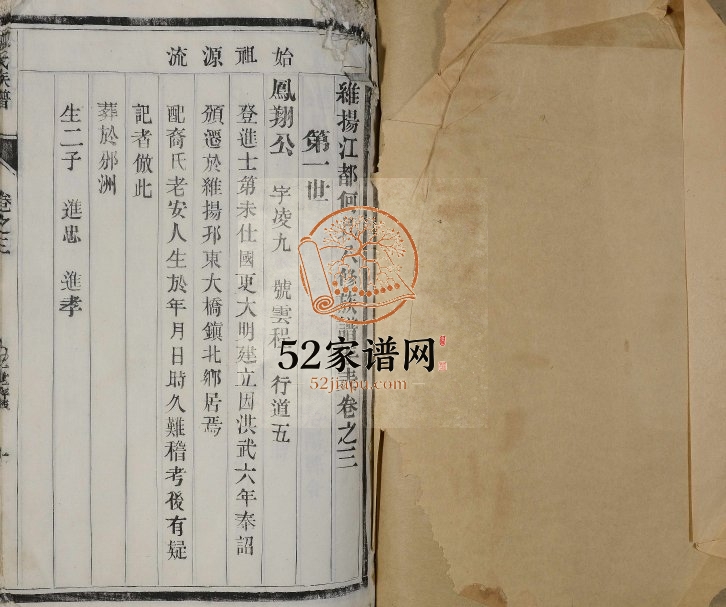 維揚江都何氏修族譜卷之三
始祖源流
第一世
鳳翔公 字凌九 號雲程 行道五
登進士第未仕國更大明建立因洪武六年奉詔
頒遷於維揚邗東大橋鎮北鄉居焉
配裔氏老安人生於年月日時久難稽考後有疑
記者倣此
葬於邗洲
生二子 進忠 進孝
氏族譜 卷之三
52家谱网
52jiapu.com